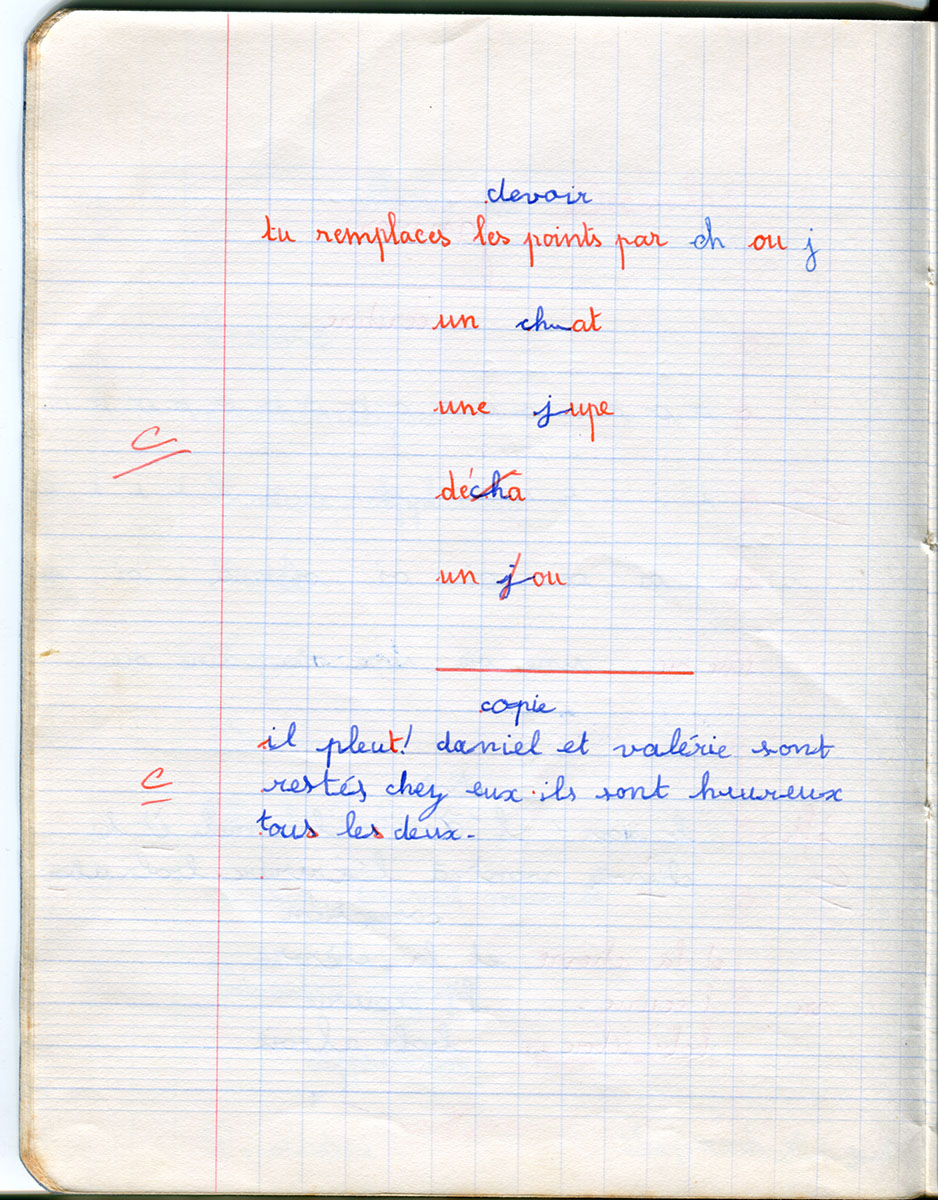 devoir
tu remplaces les points par ch ou j
un chat
une jupe
C
décha
un jou
copie
il pleut! daniel et valérie sont
C
restés chez eux. ils sont heureux
tous les deux.